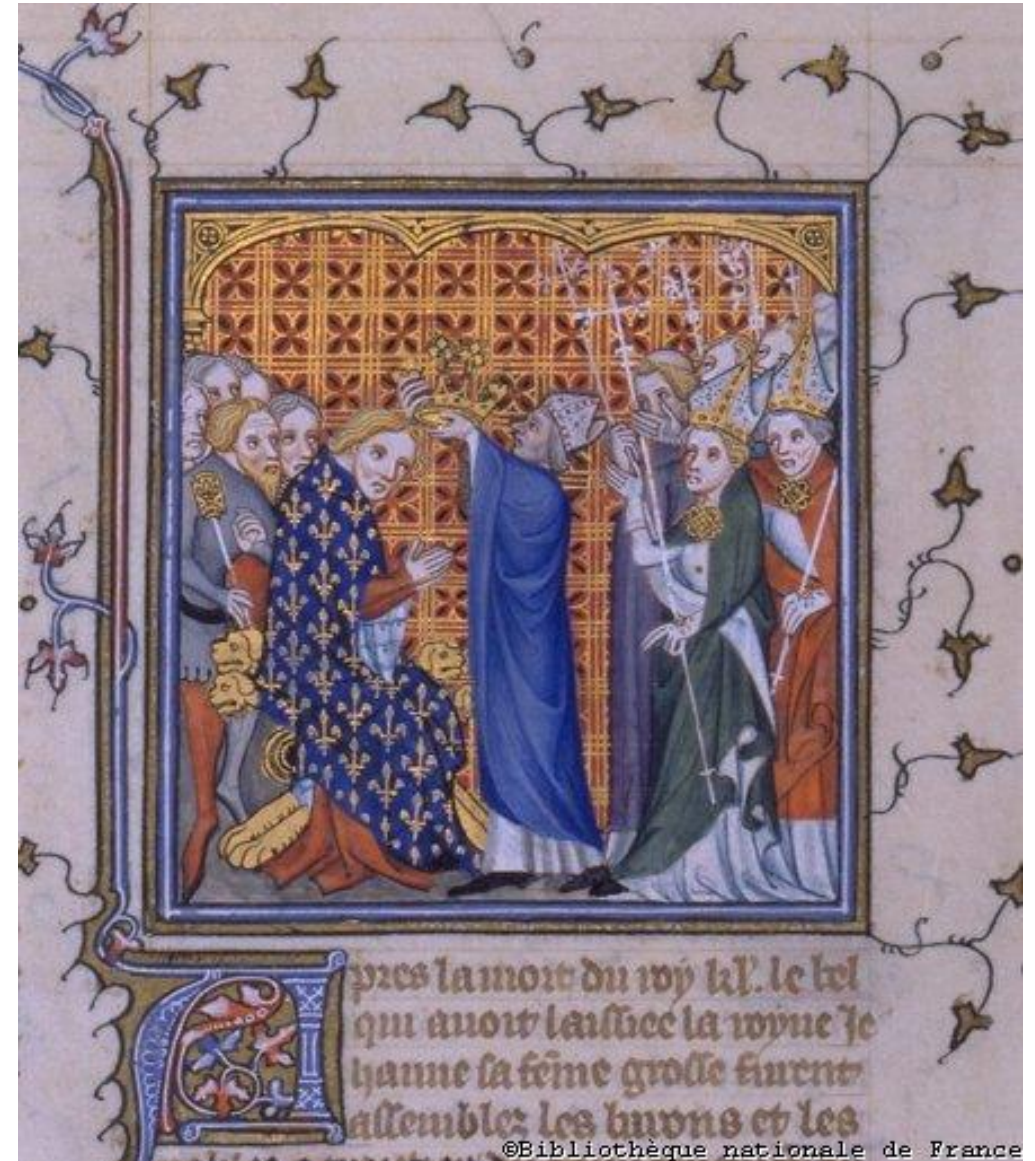 Apres la mort du roy kl. le bel
qui auoit laissiee la royne Je
hanne sa feme grosse furent
assemblez les barons et les
©Bibliothèque nationale de France